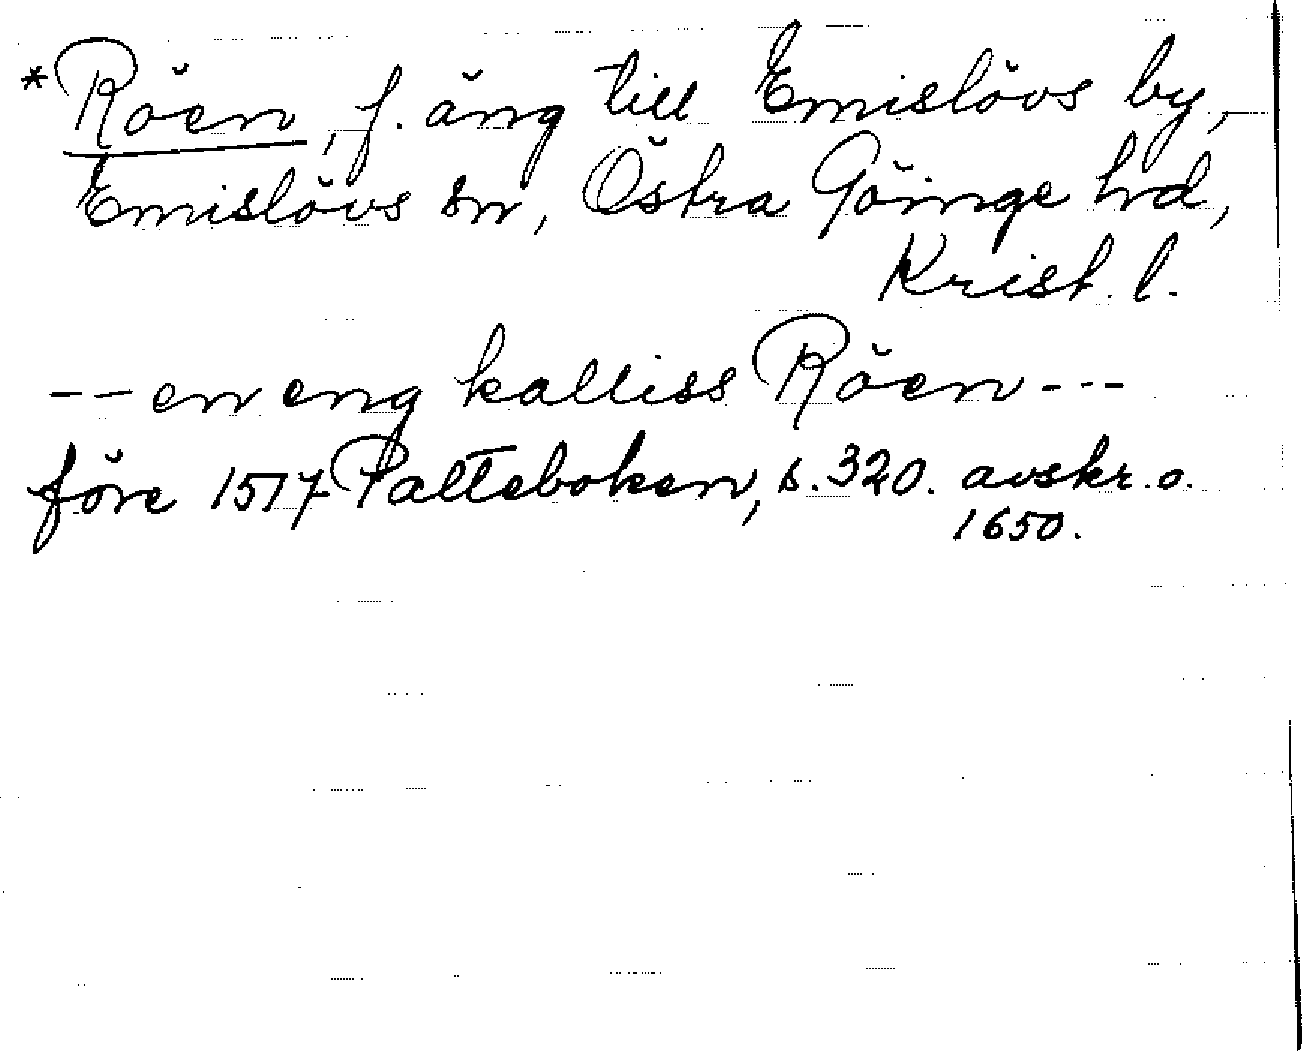 *Röen, f. äng till Emislövs by,
Emislövs sn, Östra Göinge hd,
Krist. l.
-- en eng kalliss Röen ---
före 1517 Palteboken, s. 320. avskr. o.
1650.